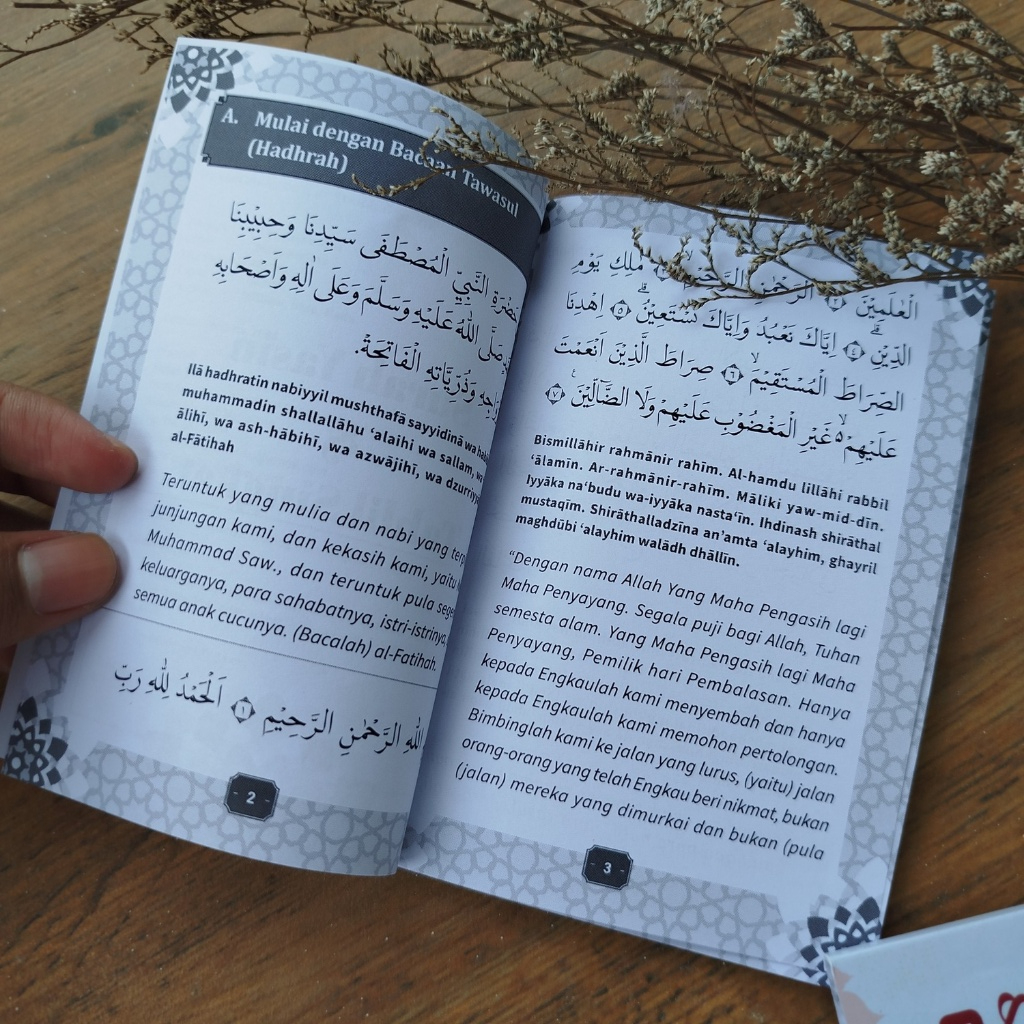 A. Mulai dengan Bacaan Tawasul
(Hadhrah)
النَّبِيِّ الْمُصْطَفَى سَيِّدِنَا وَحَبِيْبِنَا
صَلَّى اللّٰهُ عَلَيْهِ وَسَلَّمَ وَعَلَى اٰلِهِ وَاَصْحَابِهِ
وَذُرِّيَّاتِهِ الْفَاتِحَةْ.
Ilā hadhratin nabiyyil mushthafā sayyidinā wa
muhammadin shallallāhu ‘alaihi wa sallam,
ālihī, wa ash-hābihī, wa azwājihī, wa
al-Fātihah
Teruntuk yang mulia dan nabi yang
junjungan kami, dan kekasih kami, yaitu
Muhammad Saw., dan teruntuk pula
keluarganya, para sahabatnya, istri-istrinya,
semua anak cucunya. (Bacalah) al-Fatihah.
اللّٰهِ الرَّحْمٰنِ الرَّحِيْمِ ﴿١﴾ اَلْحَمْدُ لِلّٰهِ رَبِّ
2
الْعٰلَمِيْنَ ﴿٢﴾ الرَّحْمٰنِ الرَّحِيْمِ مٰلِكِ يَوْمِ
الدِّيْنِ ﴿٤﴾ اِيَّاكَ نَعْبُدُ وَاِيَّاكَ نَسْتَعِيْنُ ﴿٥﴾ اِهْدِنَا
الصِّرَاطَ الْمُسْتَقِيْمَ ﴿٦﴾ صِرَاطَ الَّذِيْنَ اَنْعَمْتَ
عَلَيْهِمْ ەۙ غَيْرِ الْمَغْضُوْبِ عَلَيْهِمْ وَلَا الضَّاۤلِّيْنَ ﴿٧﴾
Bismillāhir rahmānir rahīm. Al-hamdu lillāhi rabbil
‘ālamīn. Ar-rahmānir-rahīm. Māliki yaw-mid-dīn.
Iyyāka na‘budu wa-iyyāka nasta‘īn. Ihdinash shirāthal
mustaqīm. Shirāthalladzīna an’amta ‘alayhim, ghayril
maghdūbi ‘alayhim walādh dhāllīn.
“Dengan nama Allah Yang Maha Pengasih lagi
Maha Penyayang. Segala puji bagi Allah, Tuhan
semesta alam. Yang Maha Pengasih lagi Maha
Penyayang, Pemilik hari Pembalasan. Hanya
kepada Engkaulah kami menyembah dan hanya
kepada Engkaulah kami memohon pertolongan.
Bimbinglah kami ke jalan yang lurus, (yaitu) jalan
orang-orang yang telah Engkau beri nikmat, bukan
(jalan) mereka yang dimurkai dan bukan (pula
3